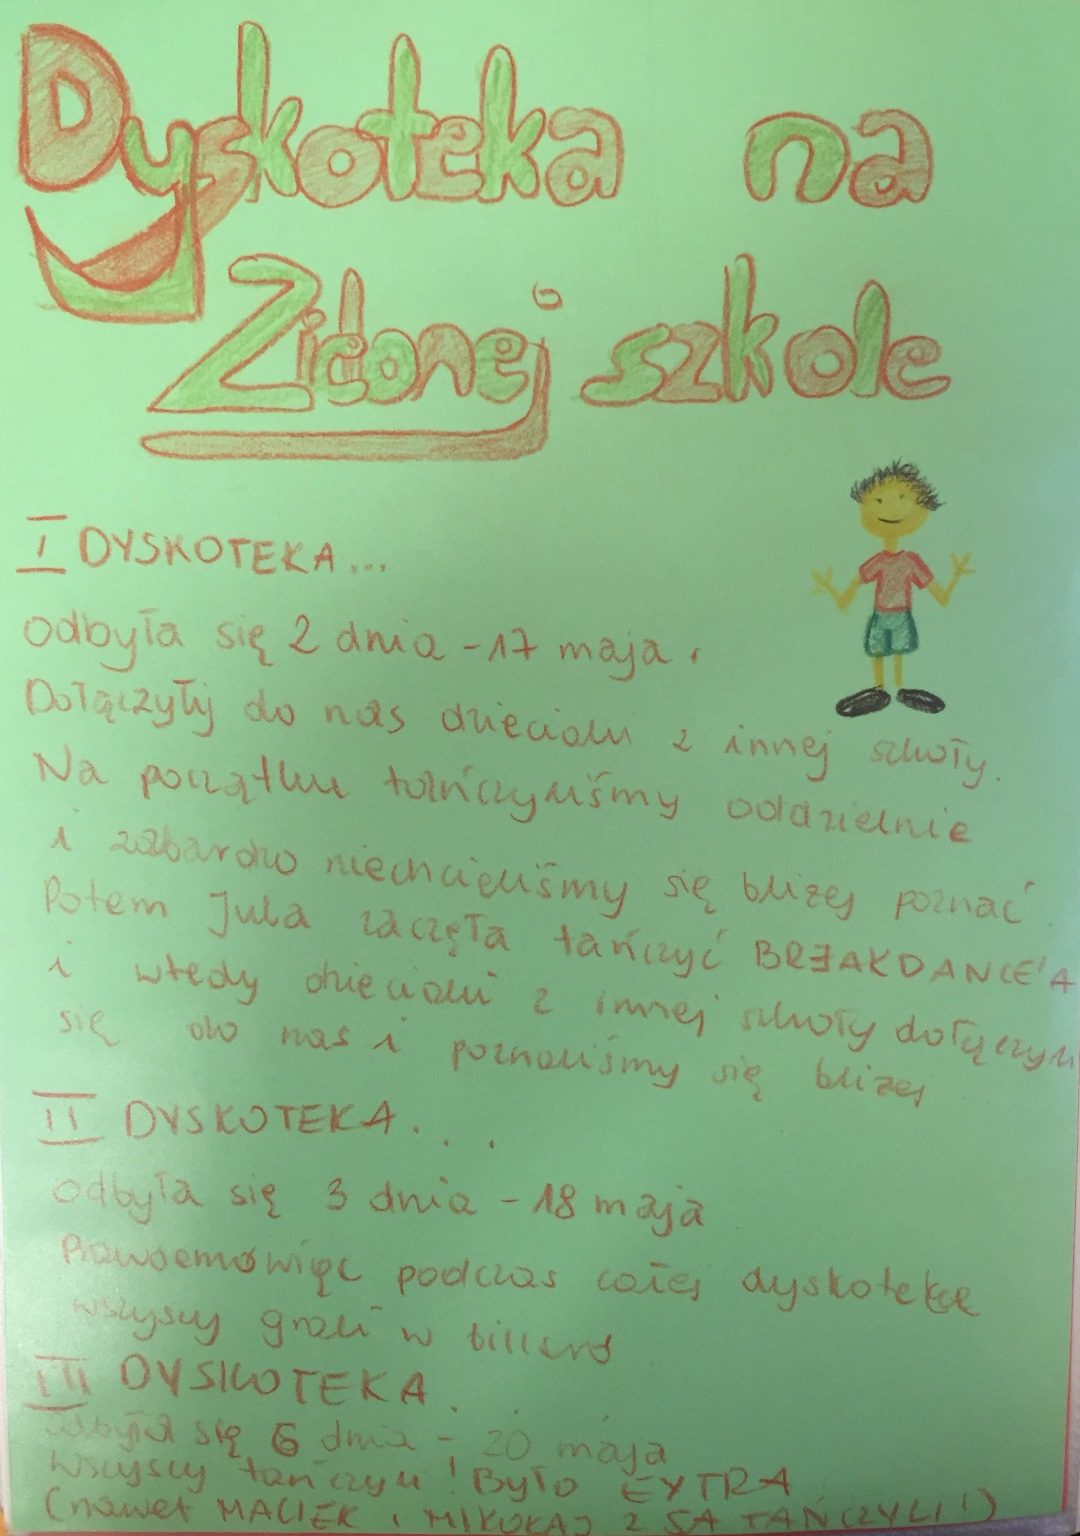 Dyskoteka na
Zielonej szkole
I DYSKOTEKA...
odbyła się 2 dnia - 17 maja.
Dołączyły do nas dzieciaki z innej szkoły.
Na początku tańczyliśmy oddzielnie
i zabardzo niechcieliśmy się bliżej poznać
Potem Jula zaczęła tańczyć BREAKDANCE'A
i wtedy dzieciaki z innej szkoły dołączyli
się do nas i poznaliśmy się bliżej
II DYSKOTEKA...
odbyła się 3 dnia - 18 maja
Prawdemówiąc podczas całej dyskotekce
wszyscy grali w billard
III DYSKOTEKA.
odbyła się 6 dnia - 20 maja
Wszyscy tańczyli! Było EXTRA
(nawet MACIEK i MIKOŁAJ z 5A TAŃCZYLI!)